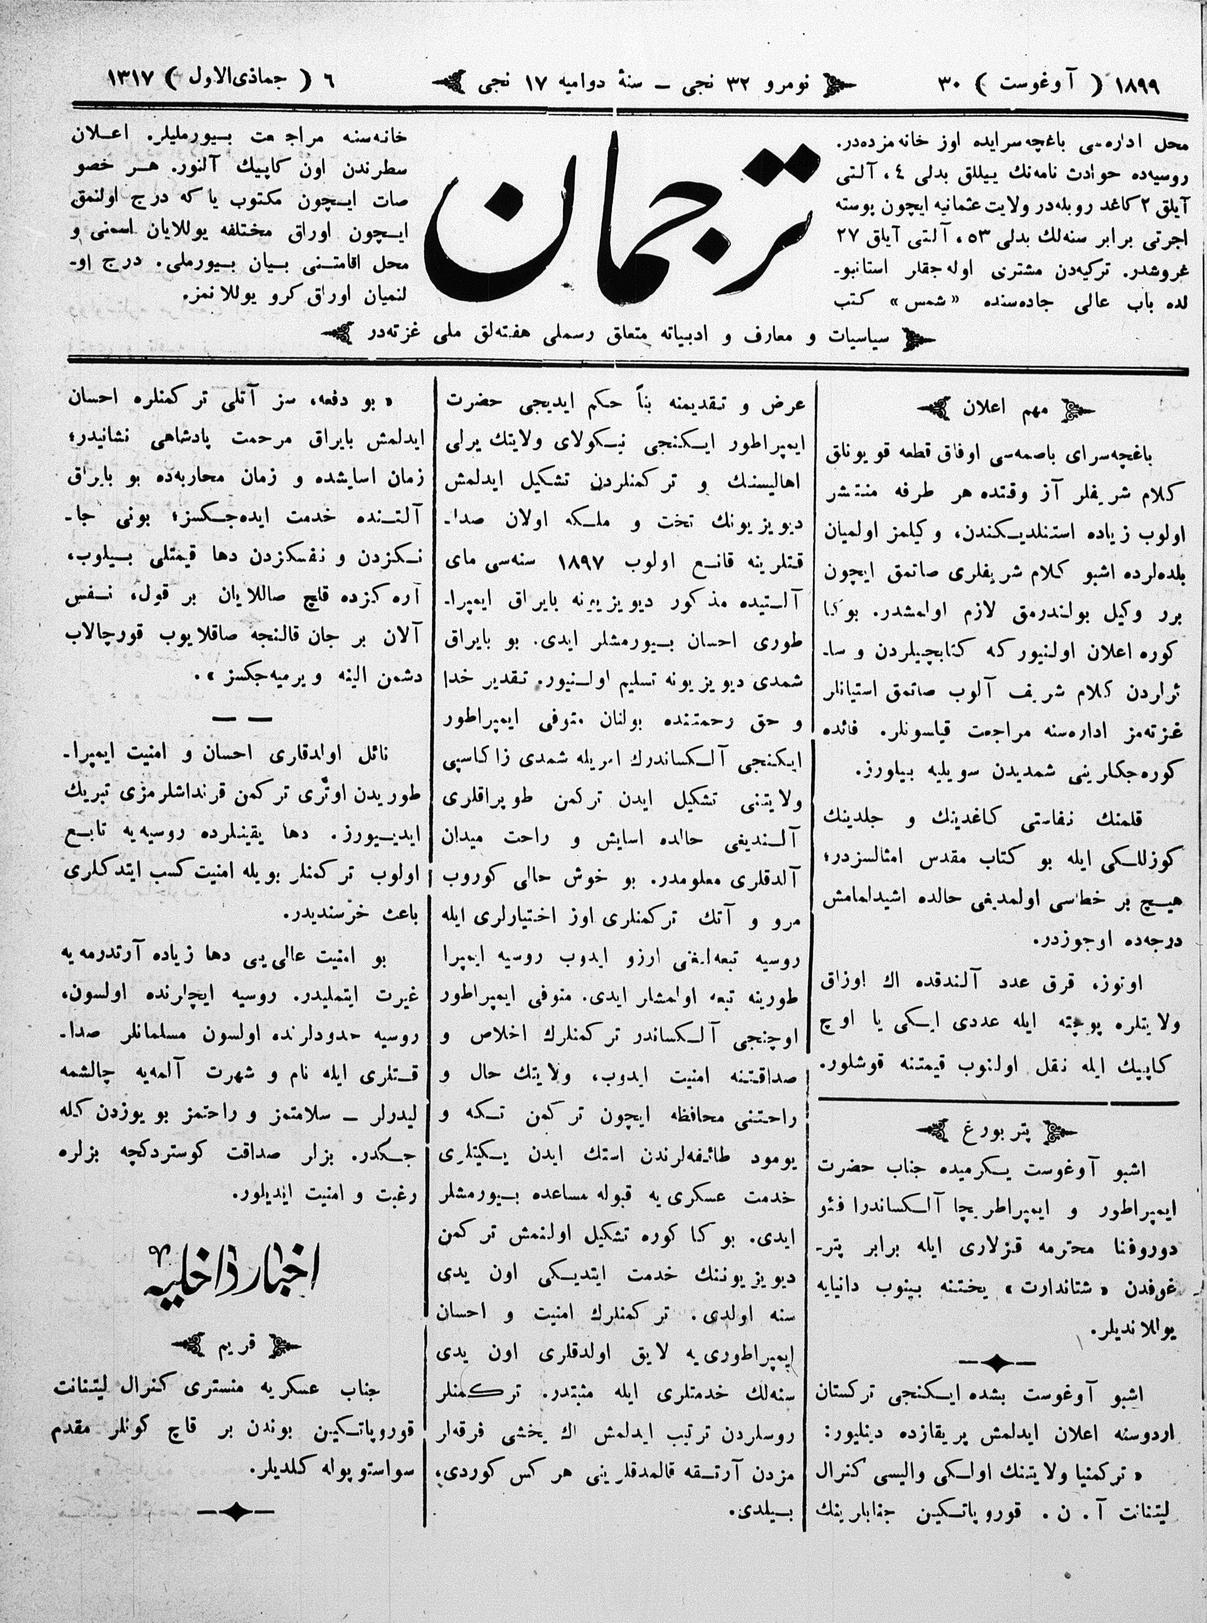 ١٨٩٩ ( آوغوست ) ٣٠
نومرو ٣٢ نجی ــ سنهٔ دوامیه ١٧ نجی
٦ ( جماذی‌الاول ) ١٣١٧
محل اداره‌سی باغچه‌سرایده اوز خانه‌مزده‌در.
روسیه‌ده حوادث نامه‌نك ییللق بدلی ٤، آلتی
آیلق ٢ كاغد روبله‌در ولایت عثمانیه ایچون پوسته
اجرتی برابر سنه‌لك بدلی ٥٣، آلتی آیلق ٢٧
غروشدر. تركیه‌دن مشتری اوله‌جقلر استانبو-
لده باب عالی جاده‌سنده «شمس» كتب
ترجمان
خانه‌سنه مراجعت بیورملیلر. اعلان
سطرندن اون كاپیك آلنور. هر خصو
صات ایچون مكتوب یا كه درج اولنمق
ایچون اوراق مختلفه یوللایان اسمنی و
محل اقامتنی بیان بیورملی. درج او-
لنمیان اوراق كرو یوللانمز.
سیاسیات و معارف و ادبیاته متعلق رسملی هفته‌لق ملی غزته‌در
مهم اعلان
باغچه‌سرای باصمه‌سی اوفاق قطعه قویوناق
كلام شریفلر آز وقتده هر طرفه منتشر
اولوب زیاده استنلدیكندن، وكیلمز اولمیان
بلده‌لرده اشبو كلام شریفلری صاتمق ایچون
برر وكیل بولندرمق لازم اولمشدر. بوكا
كوره اعلان اولنیور كه كتابچیلردن و سا-
ئرلردن كلام شریف آلوب صاتمق استیانلر
غزته‌مز اداره‌سنه مراجعت قیلسونلر. فائده
كوره‌جكلرینی شمدیدن سویلیه بیلورز.
قلمنك نفاستی كاغدینك و جلدینك
كوزللكی ایله بو كتاب مقدس امثالسزدر؛
هیچ بر خطاسی اولمدیغی حالده اشیدلمامش
درجه‌ده اوجوزدر.
اوتوز، قرق عدد آلندقده اك اوزاق
ولایتلره پوچته ایله عددی ایكی یا اوچ
كاپیك ایله نقل اولنوب قیمتنه قوشلور.
پتربورغ
اشبو آوغوست یكرمیده جناب حضرت
ایمپراطور و ایمپراطریچا آلكساندرا فئو
دوروفنا محترمه قزلاری ایله برابر پتر-
غوفدن «شتاندارت» یختنه بینوب دانیایه
یوللاندیلر.
اشبو آوغوست بشده ایكنجی تركستان
اردوسنه اعلان ایدلمش پریقازده دینلیور:
« تركمنیا ولایتنك اولكی والیسی كنرال
لیتنانت آ. ن. قوروپاتكین جنابلرینك
عرض و تقدیمنه بناً حكم ایدیجی حضرت
ایمپراطور ایكنجی نیكولای ولایتك یرلی
اهالیسنك و تركمنلردن تشكیل ایدلمش
دیویزیونك تخت و ملكه اولان صدا-
قتلرینه قانع اولوب ١٨٩٧ سنه‌سی مای
آلتیده مذكور دیویزیونه بایراق ایمپرا-
طوری احسان بیورمشلر ایدی. بو بایراق
شمدی دیویزیونه تسلیم اولنیور. تقدیر خدا
و حق رحمتنده بولنان متوفی ایمپراطور
ایكنجی آلكساندرك امریله شمدی زاكاسپی
ولایتنی تشكیل ایدن تركمن طوپراقلری
آلندیغی حالده اسایش و راحت میدان
آلدقلری معلومدر. بو خوش حالی كوروب
مرو و آتك تركمنلری اوز اختیارلری ایله
روسیه تبعه‌لغنی ارزو ایدوب روسیه ایمپرا
طورینه تبعه اولمشلر ایدی. متوفی ایمپراطور
اوچنجی آلكساندر تركمنلرك اخلاص و
صداقتنه امنیت ایدوب، ولایتك حال و
راحتنی محافظه ایچون تركمن تكه و
یومود طائفه‌لرندن استك ایدن یكیتلری
خدمت عسكری‌یه قبوله مساعده بیورمشلر
ایدی. بوكا كوره تشكیل اولنمش تركمن
دیویزیوننك خدمت ایتدیكی اون یدی
سنه اولدی. تركمنلرك امنیت و احسان
ایمپراطوری‌یه لایق اولدقلری اون یدی
سنه‌لك خدمتلری ایله مثبتدر. تركمنلر
روسلردن ترتیب ایدلمش اك یخشی فرقه‌لر
مزدن آرتقه قالمدقلرینی هر كس كوردی،
بیلدی.
« بو دفعه، سز آتلی تركمنلره احسان
ایدلمش بایراق مرحمت پادشاهی نشانیدر؛
زمان اسایشده و زمان محاربه‌ده بو بایراق
آلتنده خدمت ایده‌جكسز؛ بونی جا-
نكزدن و نفسكزدن دها قیمتلی بیلوب،
آره‌كزده قلچ صاللایان بر قول، نفس
آلان بر جان قالنجه صاقلایوب قورچالاب
دشمن الینه ویرمیه‌جكسز ».
نائل اولدقلری احسان و امنیت ایمپرا-
طوریدن اوتری تركمن قرنداشلرمزی تبریك
ایدییورز. دها یقینلرده روسیه‌یه تابع
اولوب تركمنلر بویله امنیت كسب ایتدكلری
باعث خرسندیدر.
بو امنیت عالی‌یی دها زیاده آرتدرمه‌یه
غیرت ایتملیدر. روسیه ایچلرنده اولسون،
روسیه حدودلرنده اولسون مسلمانلر صدا-
قتلری ایله نام و شهرت آلمه‌یه چالشمه
لیدرلر ــ سلامتمز و راحتمز بو یوزدن كله
جكدر. بزلر صداقت كوستردكچه بزلره
رغبت و امنیت ایدیلور.
اخبار داخلیه
قریم
جناب عسكریه منستری كنرال لیتنانت
قوروپاتكین بوندن بر قاچ كونلر مقدم
سواستوپوله كلدیلر.